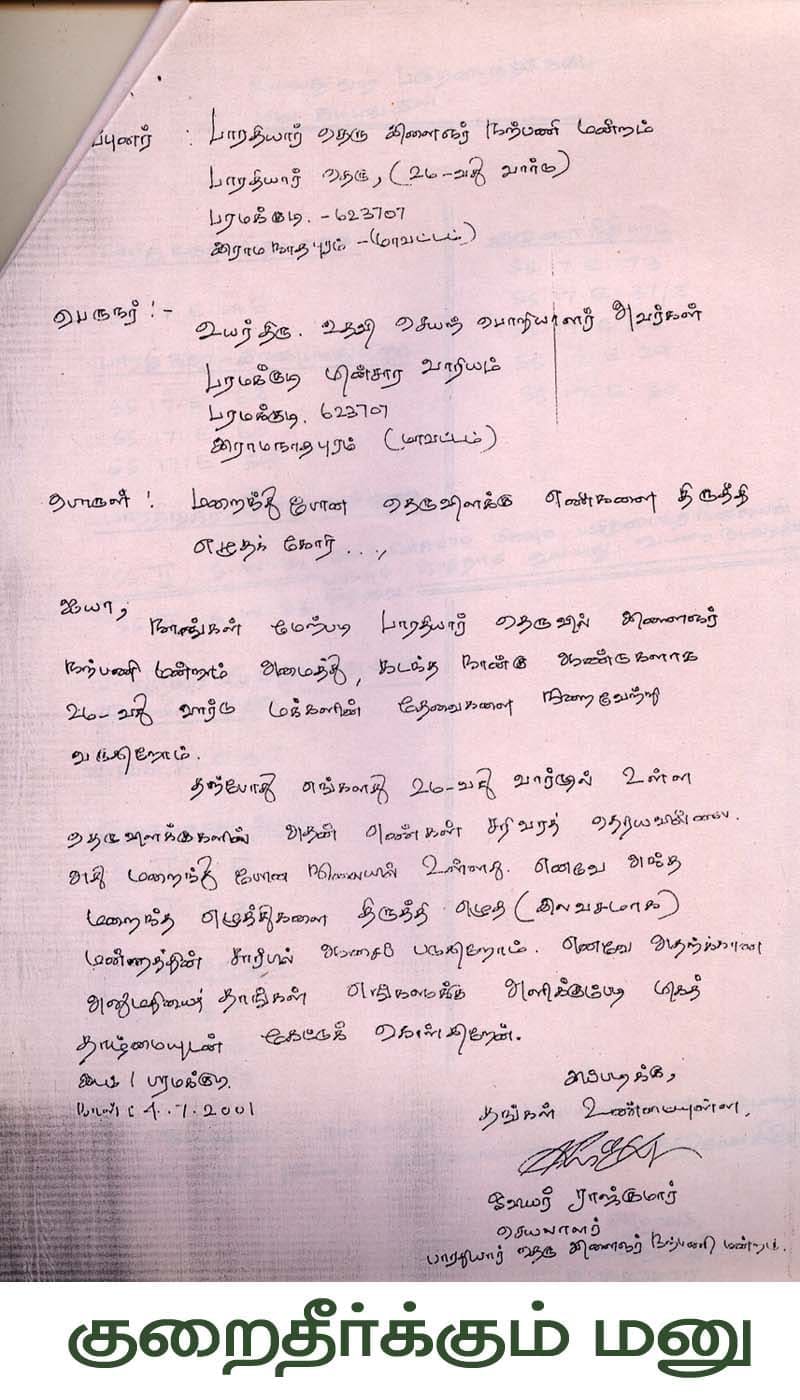 ப்புனர் : பாரதியார் தெரு இளைஞர் நற்பணி மன்றம்
பாரதியார் தெரு, (26-வது வார்டு)
பரமக்குடி. -623707
இராமநாதபுரம் -(மாவட்டம்)
பெருநர் :-
உயர்திரு. உதவி செயற் பொறியாளர் அவர்கள்
பரமக்குடி மின்சார வாரியம்
பரமக்குடி. 623707
இராமநாதபுரம் (மாவட்டம்)
பொருள் : மறைந்து போன தெருவிளக்கு எண்களை திருத்தி
எழுதக் கோரி ...,
ஐயா,
நாங்கள் மேற்படி பாரதியார் தெருவில் இளைஞர்
நற்பணி மன்றம் அமைத்து, கடந்த நான்கு ஆண்டுகளாக
26-வது வார்டு மக்களின் தேவைகளை நிறைவேற்றி
வருகிறோம்.
தற்போது எங்களது 26-வது வார்டில் உள்ள
தெருவிளக்குகளில் அதன் எண்கள் சரிவரத் தெரியவில்லை.
அது மறைந்து போன நிலையில் உள்ளது. எனவே அந்த
மறைந்த எழுத்துகளை திருத்தி எழுத (இலவசமாக)
மன்றத்தின் சார்பில் ஆசைப் படுகிறோம். எனவே அதற்க்கான
அனுமதியை தாங்கள் எங்களுக்கு அளிக்கும்படி மிகத்
தாழ்மையுடன் கேட்டுக் கொள்கிறேன்.
இடம் / பரமக்குடி.
நாள் : 4.7.2001
இப்படிக்கு,
தங்கள் உண்மையுள்ள,
ராஜ்குமார்
செயலாளர்
பாரதியார் தெரு இளைஞர் நற்பணி மன்றம்.
குறைதீர்க்கும் மனு